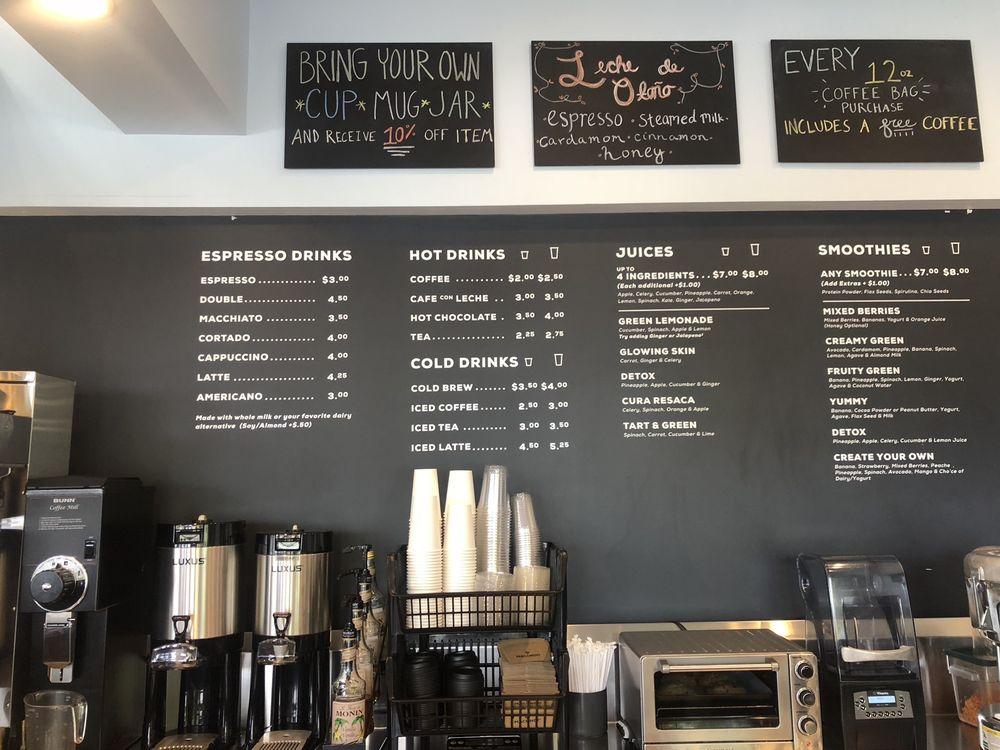 BRING YOUR OWN
*CUP* MUG*JAR*
AND RECEIVE 10% OFF ITEM
Leche de
Otoño
·espresso · steamed milk·
cardamon · cinnamon
· honey ·
EVERY 12oz
COFFEE BAG
PURCHASE
INCLUDES A free COFFEE
ESPRESSO DRINKS
ESPRESSO ............. $3.00
DOUBLE ................. 4.50
MACCHIATO ........... 3.50
CORTADO .............. 4.00
CAPPUCCINO .......... 4.00
LATTE .................... 4.25
AMERICANO ........... 3.00
Made with whole milk or your favorite dairy
alternative (Soy/Almond +$.50)
HOT DRINKS
COFFEE .......... $2.00 $2.50
CAFE CON LECHE .. 3.00 3.50
HOT CHOCOLATE . 3.50 4.00
TEA ................ 2.25 2.75
COLD DRINKS
COLD BREW ....... $3.50 $4.00
ICED COFFEE ...... 2.50 3.00
ICED TEA .......... 3.00 3.50
ICED LATTE ........ 4.50 5.25
JUICES
UP TO
4 INGREDIENTS... $7.00 $8.00
(Each additional +$1.00)
Apple, Celery, Cucumber, Pineapple, Carrot, Orange,
Lemon, Spinach, Kale, Ginger, Jalapeno
GREEN LEMONADE
Cucumber, Spinach, Apple & Lemon
Try adding Ginger or Jalapeno!
GLOWING SKIN
Carrot, Ginger & Celery
DETOX
Pineapple, Apple, Cucumber & Ginger
CURA RESACA
Celery, Spinach, Orange & Apple
TART & GREEN
Spinach, Carrot, Cucumber & Lime
SMOOTHIES
ANY SMOOTHIE... $7.00 $8.00
(Add Extras + $1.00)
Protein Powder, Flax Seeds, Spirulina, Chia Seeds
MIXED BERRIES
Mixed Berries, Bananas, Yogurt & Orange Juice
(Honey Optional)
CREAMY GREEN
Avocado, Cardamom, Pineapple, Banana, Spinach,
Lemon, Agave & Almond Milk
FRUITY GREEN
Banana, Pineapple, Spinach, Lemon, Ginger, Yogurt,
Agave & Coconut Water
YUMMY
Banana, Cocoa Powder or Peanut Butter, Yogurt,
Agave, Flax Seed & Milk
DETOX
Pineapple, Apple, Celery, Cucumber & Lemon Juice
CREATE YOUR OWN
Banana, Strawberry, Mixed Berries, Peache ,
Pineapple, Spinach, Avocado, Mango & Cho'ce of
Dairy/Yogurt
BUNN
Coffee Mill
LUXUS
LUXUS
MONIN